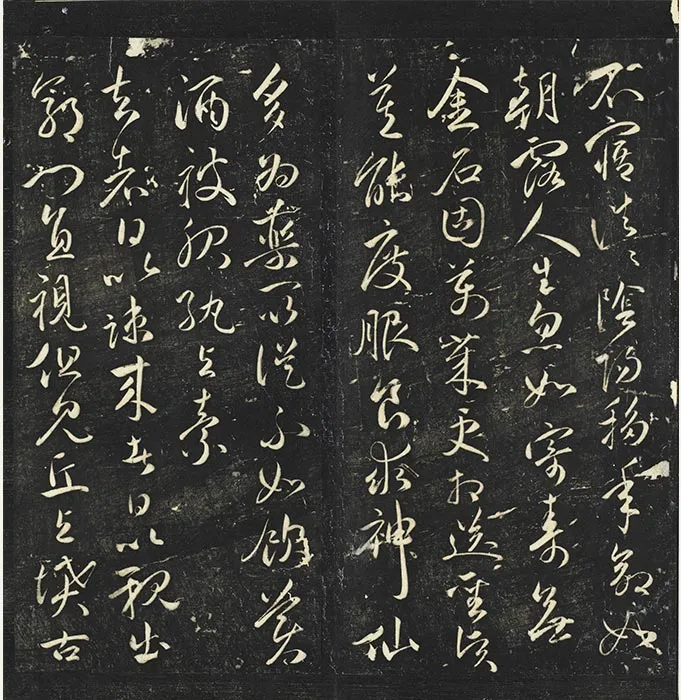 不寤浩〻陰陽移年命如
朝露人生忽如寄壽無
金石固萬歲更相送聖賢
莫能度服食求神仙
多為藥所誤不如飲美
酒被服紈與素
去者日以踈來者日以親出
郭門直視但見丘與墳古